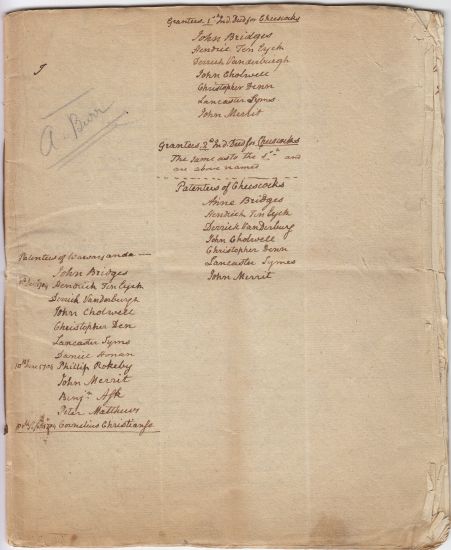 Grantees 1st Ind. Deed for Cheescocks
John Bridges
Hendric Ten Eyck
Derrick Vanderburgh
John Cholwell
Christopher Denn
Lancaster Syms
John Merrit
A. Burr
Grantees 2d Ind. Deed for Cheescocks
The same as to the 1st and
are above named
Patentees of Cheescocks
Anne Bridges
Hendrich Ten Eyck
Derrick Vanderburg
John Cholwell
Christopher Denn
Lancaster Symes
John Merrit
Patentees of Wawayanda
John Bridges
Hendrich Ten Eyck
Derrick Vanderburgh
John Cholwell
Christopher Den
Lancaster Syms
Daniel Honan
Phillip Rokeby
John Merrit
Benjn Ask
Peter Matthews
Cornelius Christianse